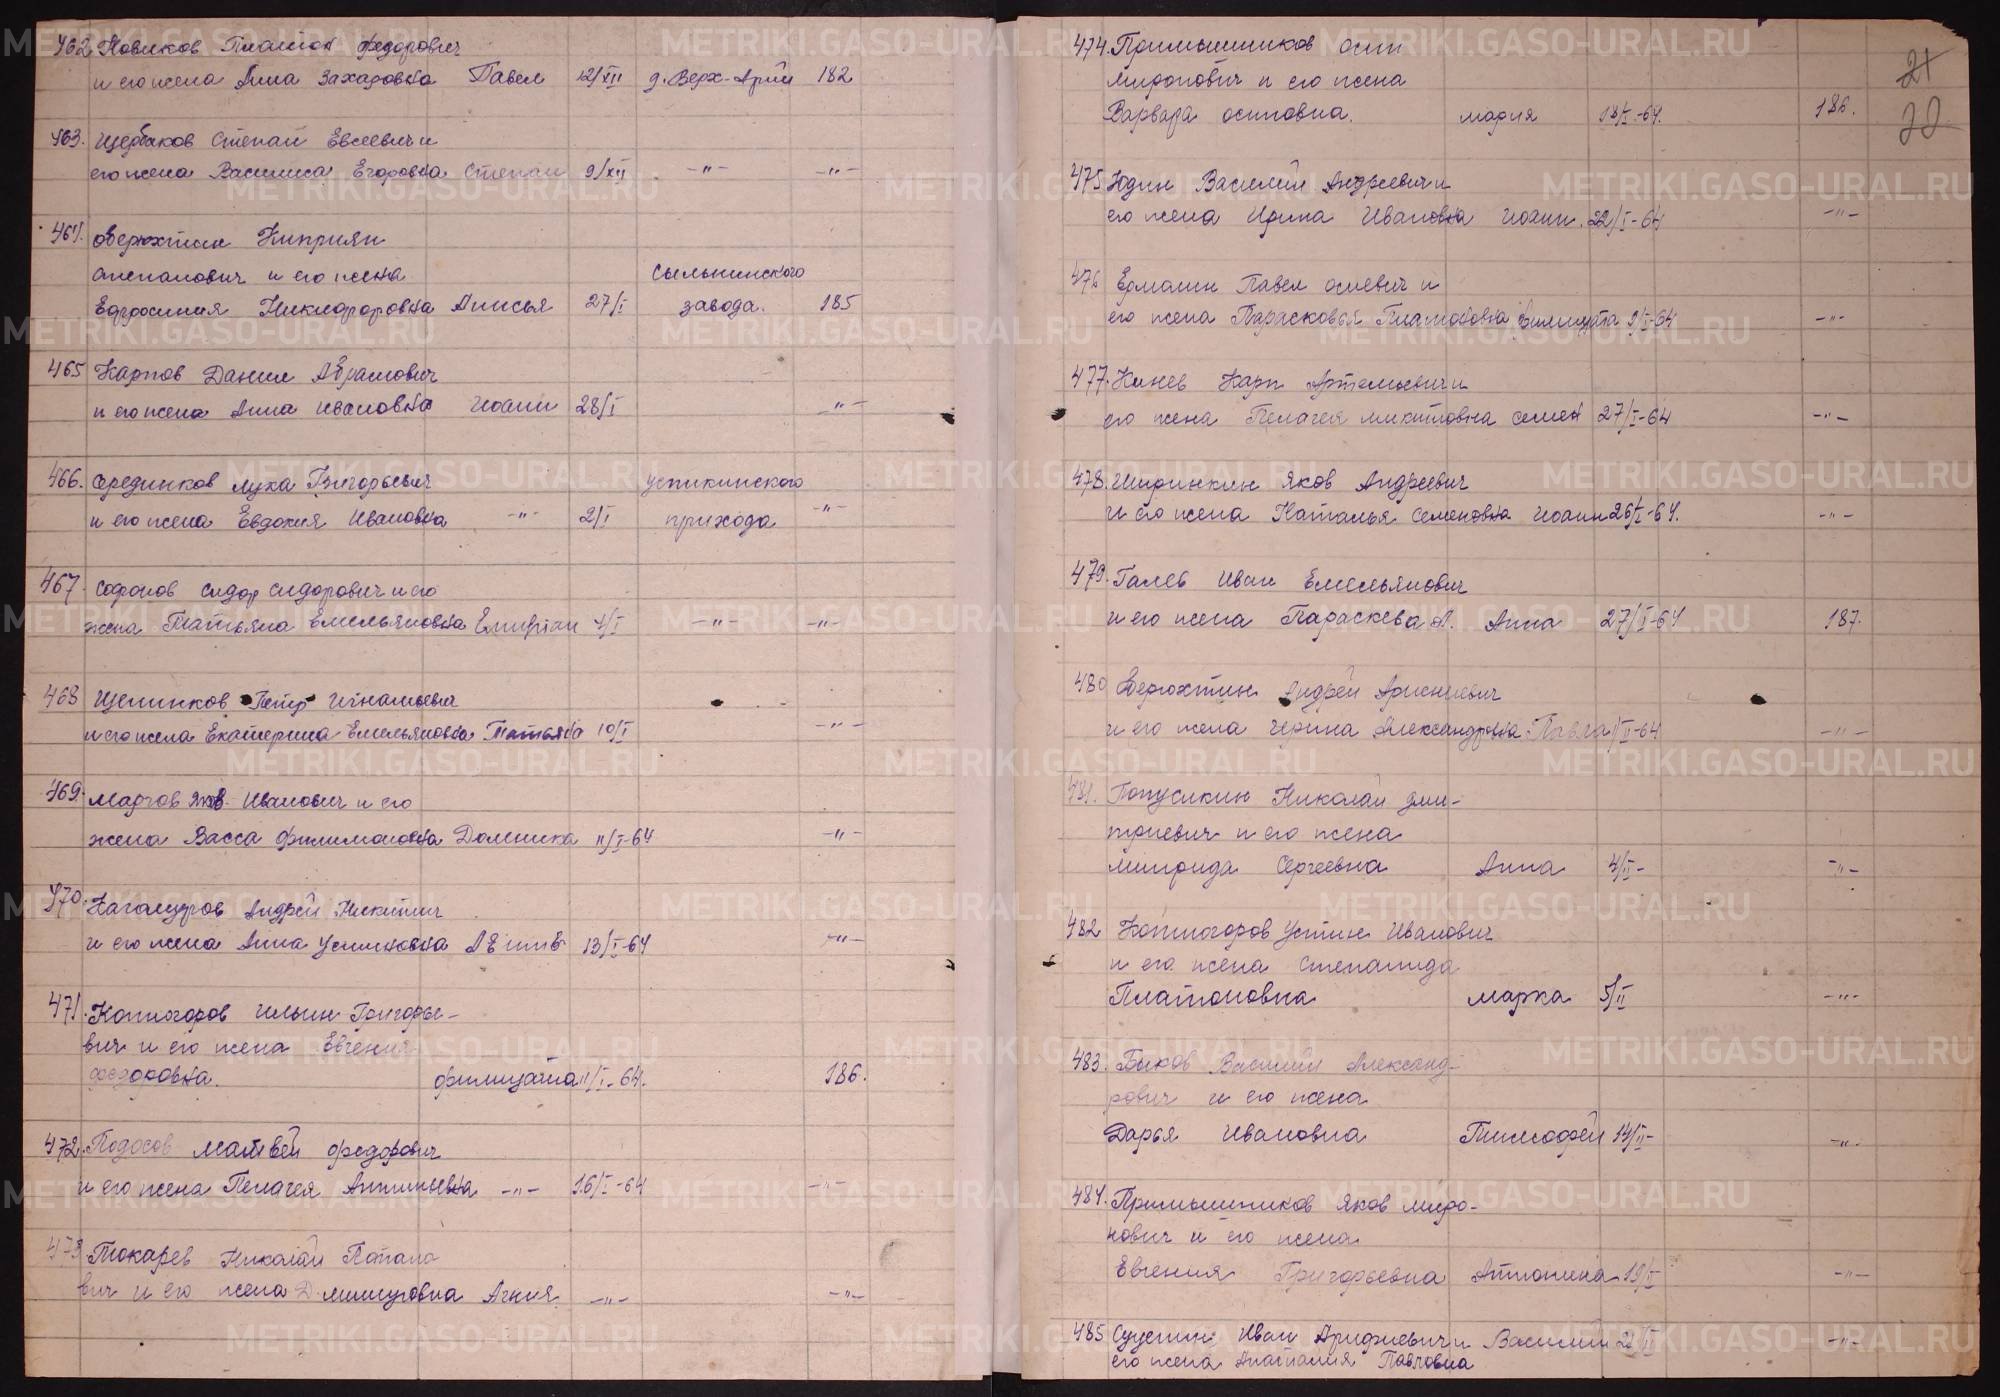 462 Новиков Платон Федорович
и его жена Анна Захаровна Павел 12/XII д. Верх-Арий 182
463. Щербаков Степан Евсеевич и
его жена Василиса Егоровна Степан 9/XII -"- -"-
464. Оверюхтин Киприян
Степанович и его жена Сылвинского
Ефросиния Никифоровна Анисья 27/I завода. 185
465 Карпов Данил Абрамович
и его жена Анна Ивановна Иоанн 28/I -"-
466. Серединков Лука Григорьевич Устикинского
и его жена Евдокия Ивановна -"- 2/I прихода -"-
467. Софонов Сидор Сидорович и его
жена Татьяна Емельяновна 4/I -"- -"-
468 Щепинков Петр Игнатьевич
и его жена Екатерина Емельяновна Татьяна 10/I -"-
469. Яков Иванович и его
жена Васса Филимоновна Домника 11/I-64 -"-
470. Андрей Никитич
и его жена Анна Устиновна 13/I-64 -"-
471. Копногоров Ильин Григорье-
вич и его жена Евгения
Федоровна. Филицата 11/I-64. 186.
472. Подосов Матвей Федорович
и его жена Пелагея Антипьевна -"- 16/I-64 -"-
473. Токарев Николай Потапо
вич и его жена Д. Агния -"- -"-
474. Примышников Осип 21
Миронович и его жена 20
Варвара Осиповна. Мария 18/I-64. 186.
475. Юдин Василий Андреевич и
его жена Ирина Ивановна Иоанн. 22/I-64 -"-
476 Ермашин Павел Осиевич и
его жена Парасковья Платоновна 9/I-64 -"-
477. Кинев Карп Артемьевич и
его жена Пелагея Микитовна Семен 27/I-64 -"-
478. Ширинкин Яков Андреевич
и его жена Наталья Семеновна Иоанн 26/I-64. -"-
479. Галев Иван Емельянович
и его жена Параскева А. Анна 27/I-64 187.
480 Оверюхтин Андрей
и его жена Ирина Александровна Павла 1/II-64 -"-
481. Николай Дми-
триевич и его жена
Митрида Сергеевна Анна 4/II- -"-
482 Копногоров Устин Иванович
и его жена Степанида
Платоновна Марка 5/II -"-
483. Быков Василий Александ-
рович и его жена
Дарья Ивановна Тимофей 14/II- -"-
484. Примышников Яков Миро-
нович и его жена
Евгения Григорьевна Антонина 19/I -"-
485 Сущенин Иван и Василий 21/II -"-
его жена Анастасия Павловна